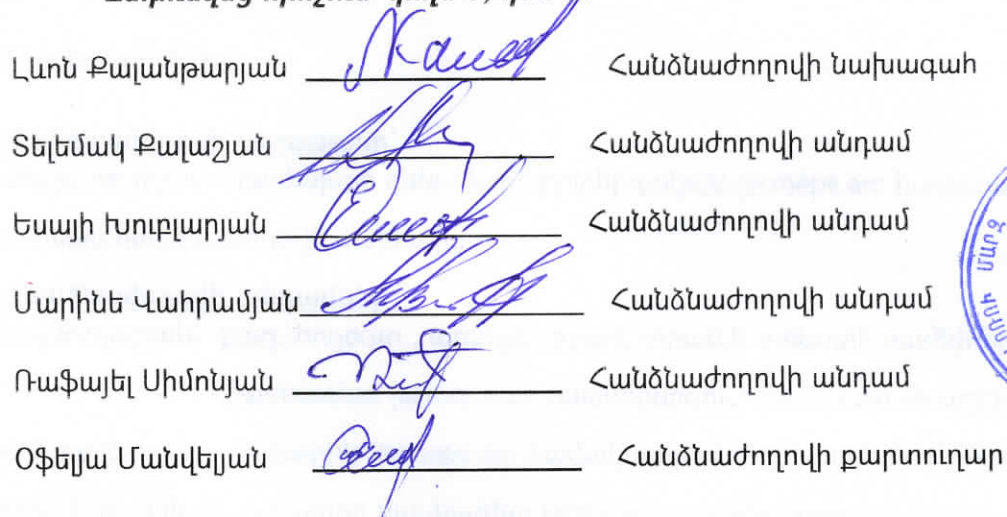 Լևոն Քալանթարյան Հանձնաժողովի նախագահ
Տելեմակ Քալաշյան Հանձնաժողովի անդամ
Եսայի Խուբլարյան Հանձնաժողովի անդամ
Մարինե Վահրամյան Հանձնաժողովի անդամ
Ռաֆայել Սիմոնյան Հանձնաժողովի անդամ
Օֆելյա Մանվելյան Հանձնաժողովի քարտուղար
ՄԱՐԶ